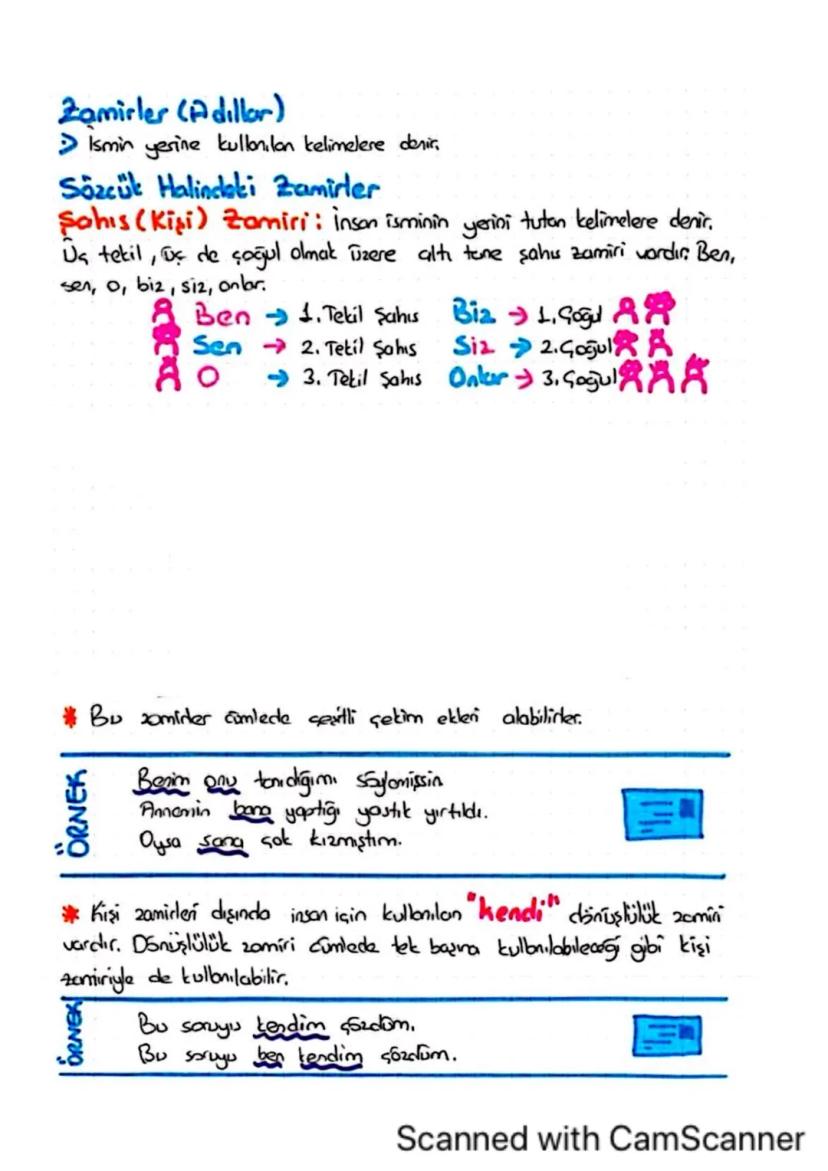 Zamirler (Adıllar)
> İsmin yerine kullanılan kelimelere denir.
Sözcük Halindeki Zamirler
Şahıs (Kişi) Zamiri : İnsan isminin yerini tutan kelimelere denir.
Üç tekil, üç de çoğul olmak üzere altı tane şahıs zamiri vardır. Ben,
sen, o, biz, siz, onlar.
Ben → 1. Tekil Şahıs Biz → 1. Çoğul
Sen → 2. Tekil Şahıs Siz → 2. Çoğul
O → 3. Tekil Şahıs Onlar → 3. Çoğul
* Bu zamirler cümlede çeşitli çekim ekleri alabilirler.
ÖRNEK
Benim onu tanıdığımı söylemişsin
Annemin bana yaptığı yastık yırtıldı.
Oysa sana çok kızmıştım.
* Kişi zamirleri dışında insan için kullanılan "kendi" dönüşlülük zamiri
vardır. Dönüşlülük zamiri cümlede tek başına kullanılabileceği gibi kişi
zamiriyle de kullanılabilir.
ÖRNEK
Bu soruyu kendim çözdüm.
Bu soruyu ben kendim çözdüm.
Scanned with CamScanner